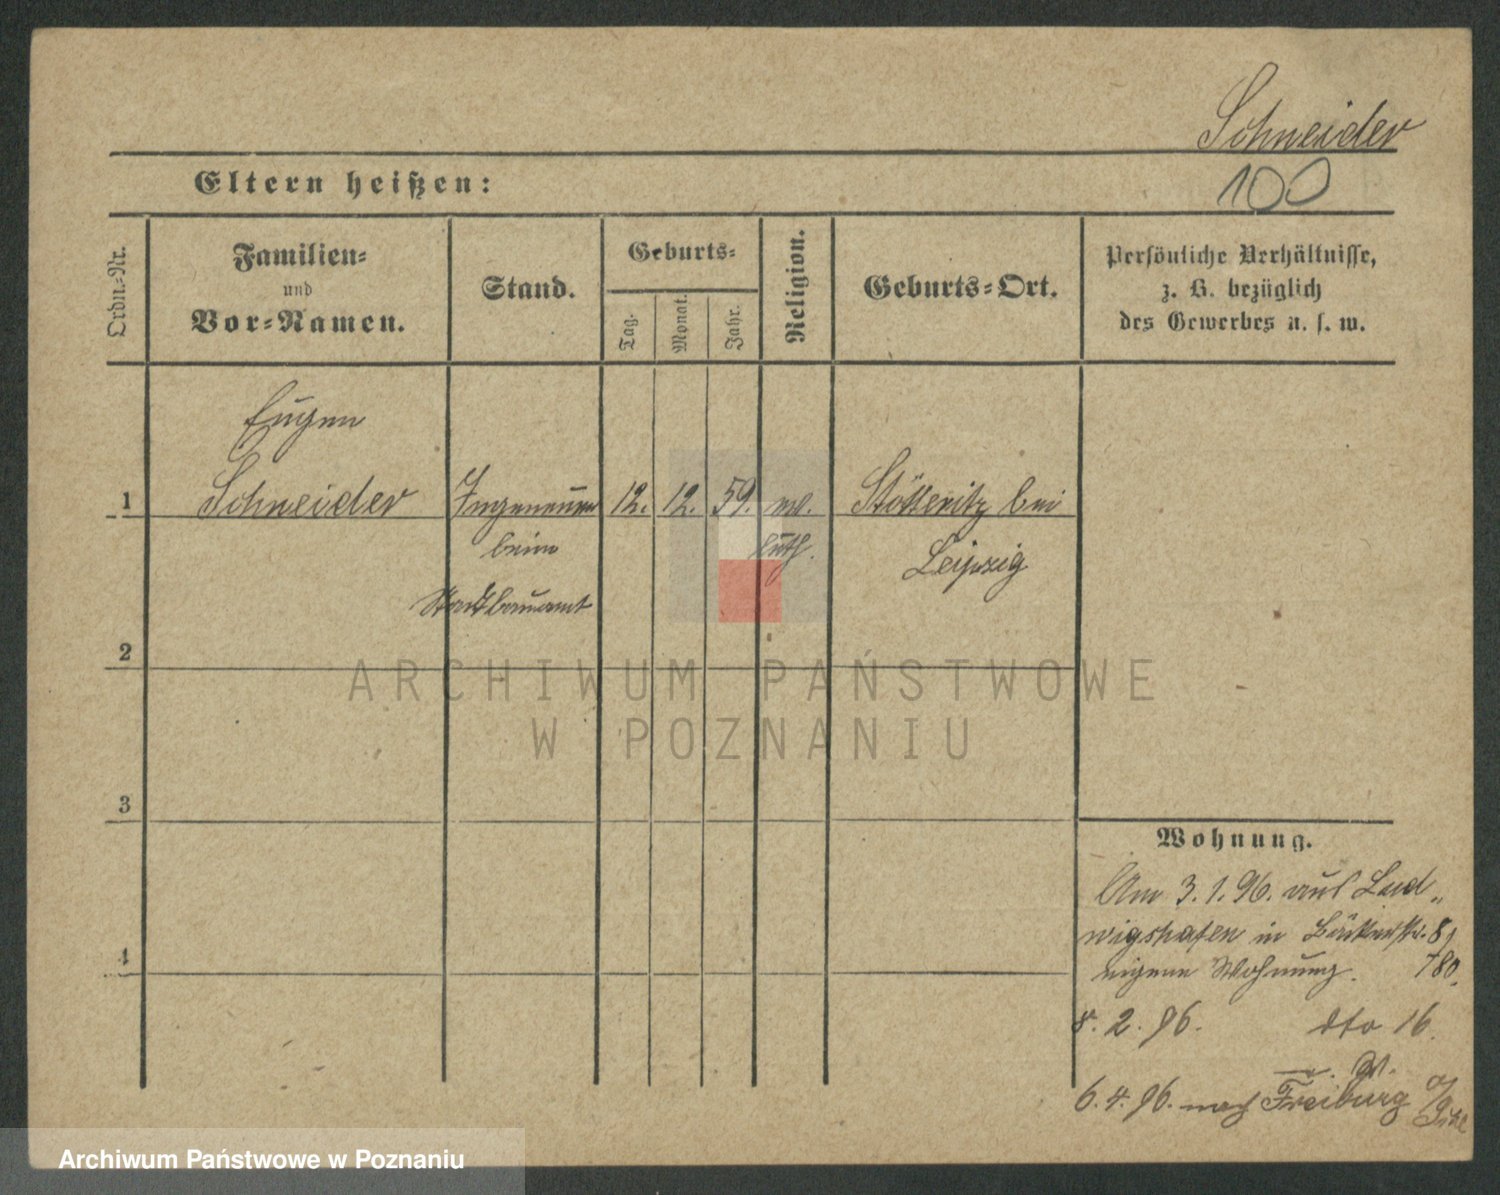 Schneider
100
Eltern heißen:
Ordn.-Nr.
Familien-
und
Vor-Namen.
Stand.
Geburts-
Tag.
Monat.
Jahr.
Religion.
Geburts-Ort.
Persönliche Verhältnisse,
z. B. bezüglich
des Gewerbes u. s. w.
Eugen
1 Schneider Ingenieur 12. 12. 59. ev. Stötteritz bei
beim luth. Leipzig
Stadtbauamt
2
3
4
Wohnung.
Am 3.1.96. aus Lud„
wigshafen in Bäckerstr. 8,
eigene Wohnung. 780.
8. 2. 96. dto 16.
6. 4. 96. nach Freiburg
ARCHIWUM PAŃSTWOWE
W POZNANIU
Archiwum Państwowe w Poznaniu